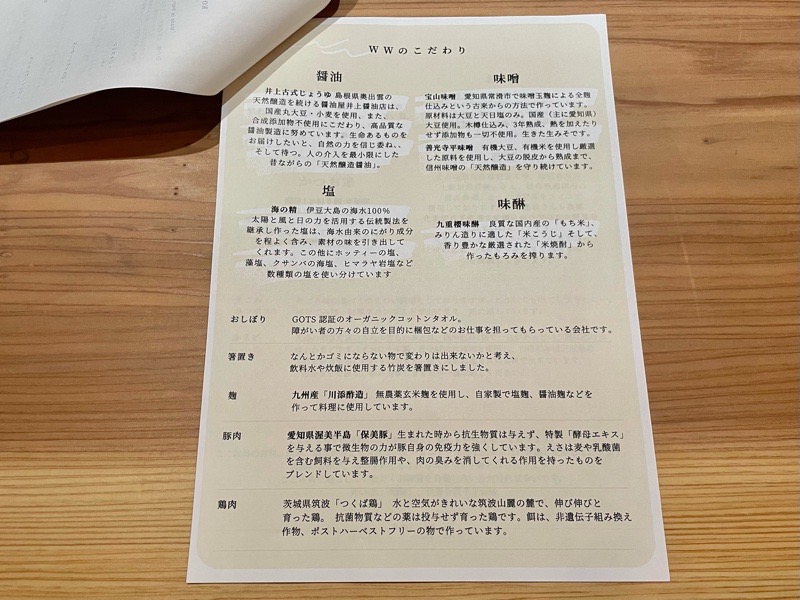 WWのこだわり
醤油
井上古式じょうゆ 島根県奥出雲の
天然醸造を続ける醤油屋井上醤油店は、
国産丸大豆・小麦を使用、また、
合成添加物不使用にこだわり、高品質な
醤油製造に努めています。生命あるものを
お届けしたいと、自然の力を信じ委ね、、
そして待つ。人の介入を最小限にした
昔ながらの「天然醸造醤油」。
味噌
宝山味噌 愛知県常滑市で味噌玉麹による全麹
仕込みという古来からの方法で作っています。
原材料は大豆と天日塩のみ。国産（主に愛知県）
大豆使用。木樽仕込み。3年熟成、熱を加えたり
せず添加物も一切不使用。生きた生みそです。
善光寺平味噌 有機大豆、有機米を使用し厳選
した原料を使用し、大豆の脱皮から熟成まで、
信州味噌の「天然醸造」を守り続けています。
塩
海の精 伊豆大島の海水100%
太陽と風と日の力を活用する伝統製法を
継承し作った塩は、海水由来のにがり成分
を程よく含み、素材の味を引き出して
くれます。この他にホッティーの塩、
藻塩、クサンバの海塩、ヒマラヤ岩塩など
数種類の塩を使い分けています
味醂
九重櫻味醂 良質な国内産の「もち米」、
みりん造りに適した「米こうじ」そして、
香り豊かな厳選された「米焼酎」から
作ったもろみを搾ります。
おしぼり GOTS 認証のオーガニックコットンタオル。
障がい者の方々の自立を目的に梱包などのお仕事を担ってもらっている会社です。
箸置き なんとかゴミにならない物で変わりは出来ないかと考え、
飲料水や炊飯に使用する竹炭を箸置きにしました。
麹 九州産「川添酢造」 無農薬玄米麹を使用し、自家製で塩麹、醤油麹などを
作って料理に使用しています。
豚肉 愛知県渥美半島「保美豚」生まれた時から抗生物質は与えず、特製「酵母エキス」
を与える事で微生物の力が豚自身の免疫力を強くしています。えさは麦や乳酸菌
を含む飼料を与え整腸作用や、肉の臭みを消してくれる作用を持ったものを
ブレンドしています。
鶏肉 茨城県筑波「つくば鶏」 水と空気がきれいな筑波山麓の麓で、伸び伸びと
育った鶏。 抗菌物質などの薬は投与せず育った鶏です。餌は、非遺伝子組み換え
作物、ポストハーベストフリーの物で作っています。